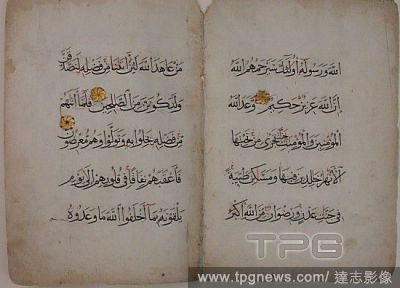 الله ورسوله أولئك سيرحمهم الله
إن الله عزيز حكيم وعد الله
المؤمنين والمؤمنات جنات تجري من تحتها
الأنهار خالدين فيها ومساكن طيبة
في جنات عدن ورضوان من الله أكبر
من عاهد الله لئن آتانا من فضله لنصدقن
ولنكونن من الصالحين فلما آتاهم
من فضله بخلوا به وتولوا وهم معرضون
فأعقبهم نفاقا في قلوبهم إلى يوم
يلقونه بما أخلفوا الله ما وعدوه
TPG
www.tpgnews.com/達志影像